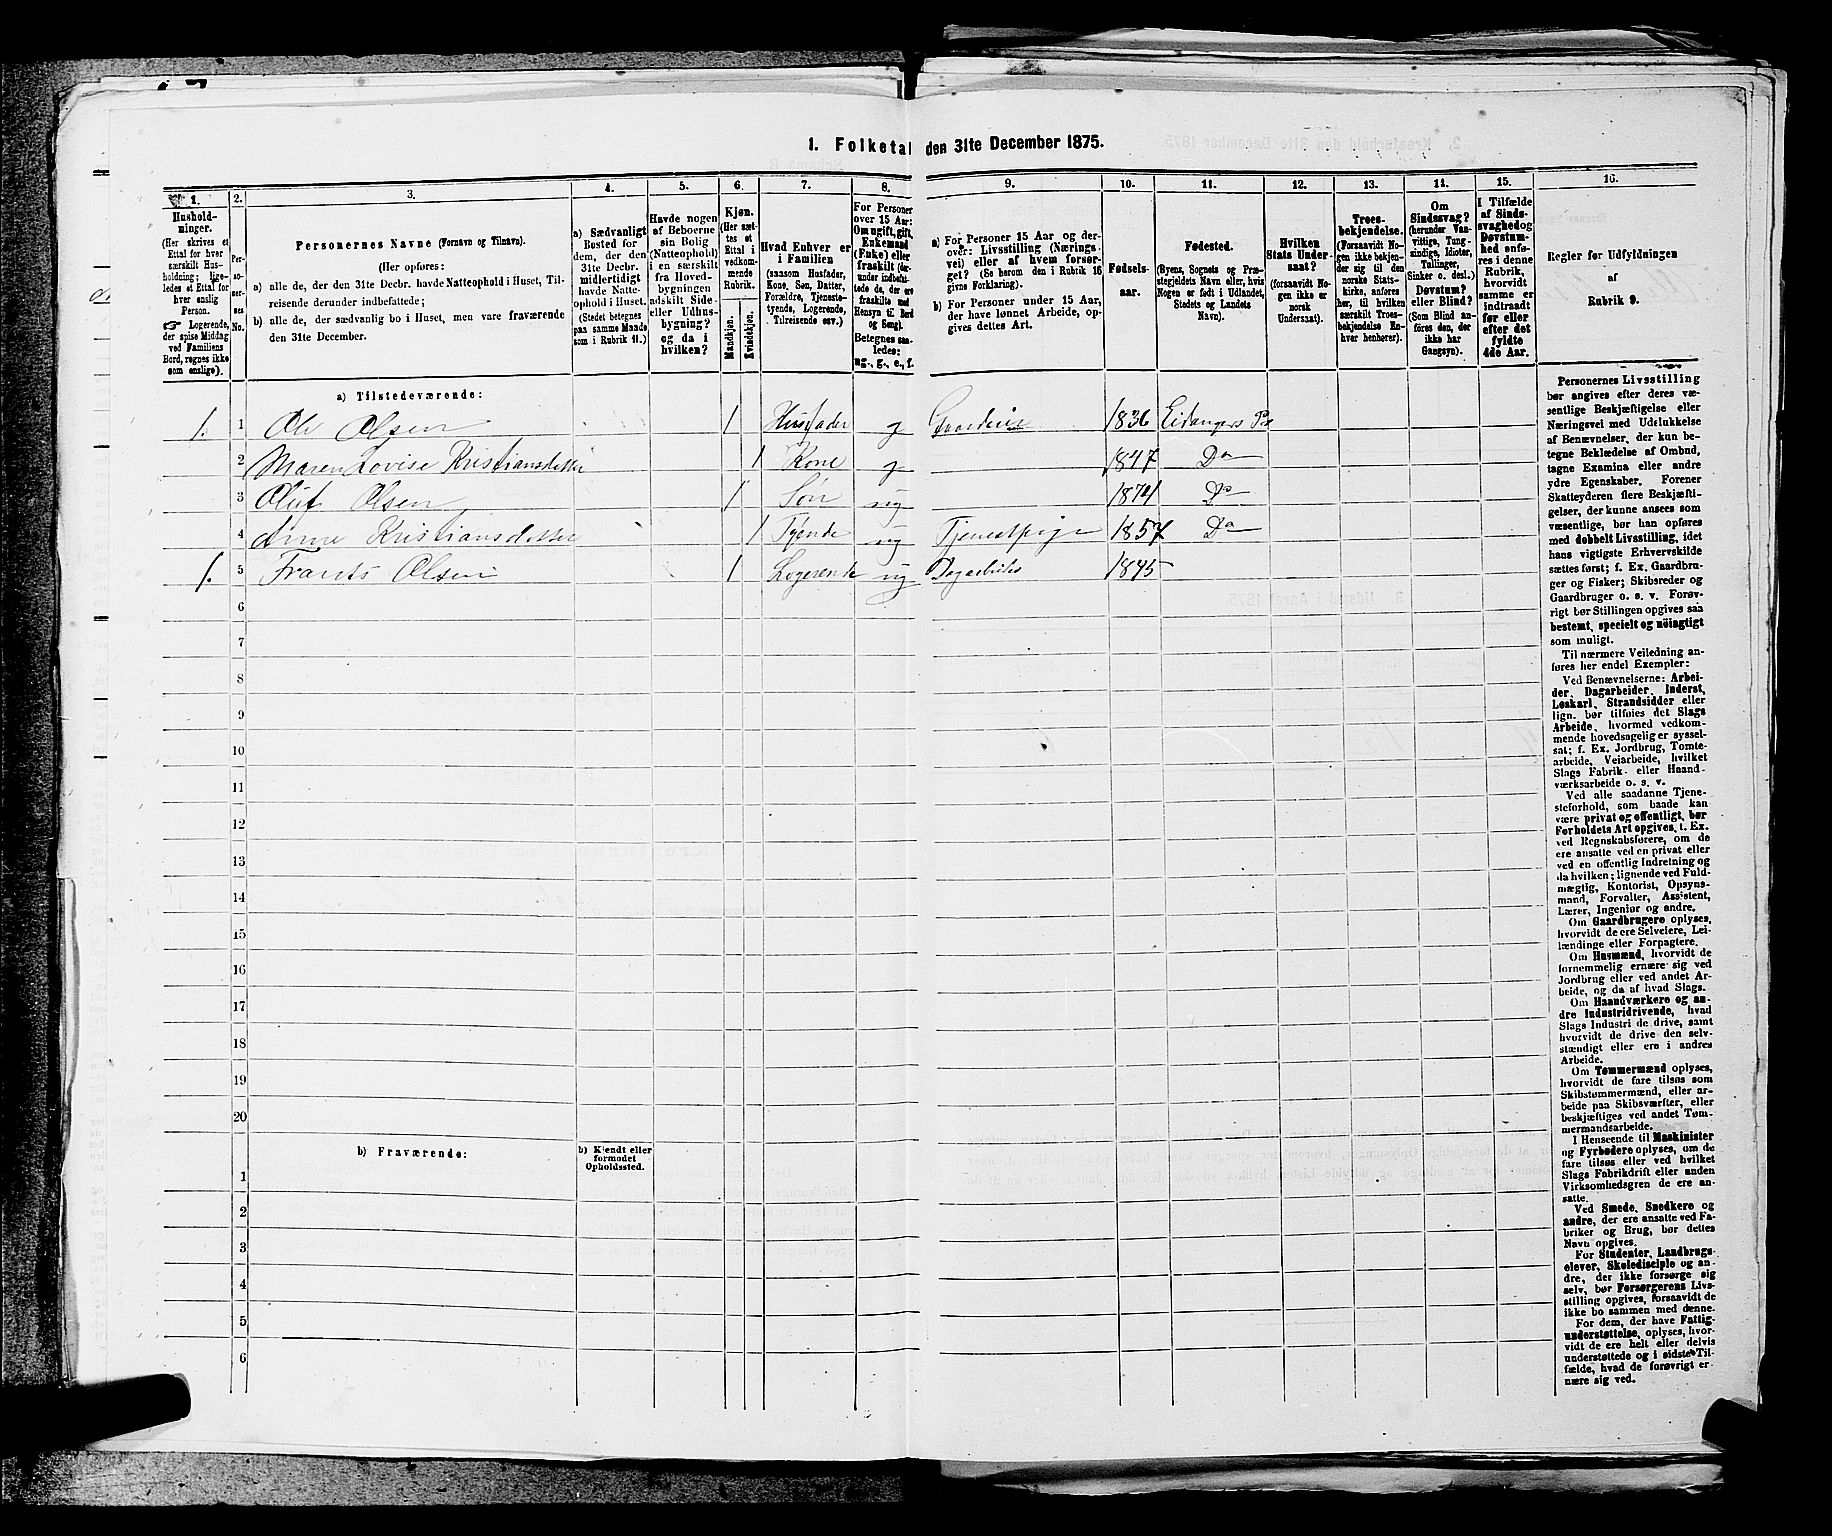 1. Folketal den 31te December 1875.
1.
2.
3.
4.
5.
6.
7.
8.
9.
10.
11.
12.
13.
14.
15.
16.
Hushold-
ninger.
(Her skrives et
Ettal for hver
særskilt Hus-
holdning; lige-
ledes et Ettal for
hver enslig
Person.
☞ Logerende,
der spise Middag
ved Familiens
Bord, regnes ikke
som enslige).
Per-
so-
ner-
nes
No.
Personernes Navne (Fornavn og Tilnavn).
(Her opføres:
a) alle de, der den 31te Decbr. havde Natteophold i Huset, Til-
reisende derunder indbefattede;
b) alle de, der sædvanlig bo i Huset, men vare fraværende
den 31te December.
a) Sædvanligt
Bosted for
dem, der den
31te Decbr.
midlertidigt
havde Natte-
ophold i Huset.
(Stedet betegnes
paa samme Maade
som i Rubrik 11.)
Havde nogen
af Beboerne
sin Bolig
(Natteophold)
i en særskilt
fra Hoved-
bygningen
adskilt Side-
eller Udhus-
bygning?
og da i
hvilken?
Kjøn.
(Her sæt-
tes et
Ettal i
vedkom-
mende
Rubrik.
Mandkjøn.
Kvindekjøn.
Hvad Enhver er
i Familien
(saasom Husfader,
Kone, Søn, Datter,
Forældre, Tjeneste-
tyende, Logerende,
Tilreisende osv.)
For Personer
over 15 Aar:
Om ugift, gift,
Enkemand
(Enke) eller
fraskilt (der-
under indbefat-
tede de, der ere
fraskilte med
Hensyn til Bord
og Seng).
Betegnes saa-
ledes:
ug., g., e., f.
a) For Personer 15 Aar og der-
over: Livsstilling (Nærings-
vei) eller af hvem forsør-
get? (Se herom den i Rubrik 16
givne Forklaring).
b) For Personer under 15 Aar,
der have lønnet Arbeide, op-
gives dettes Art.
Fødsels-
aar.
Fødested.
(Byens, Sognets og Præ-
stegjeldets Navn eller, hvis
Nogen er født i Udlandet,
Stedets og Landets
Navn).
Hvilken
Stats Under-
saat?
(forsaavidt No-
gen ikke er
norsk
Undersaat).
Troes-
bekjendelse.
(Forsaavidt No-
gen ikke bekjen-
der sig til den
norske Stats-
kirke, anføres
her, til hvilken
særskilt Troes-
bekjendelse En-
hver henhører).
Om
Sindssvag?
(herunder Van-
vittige, Tung-
sindige, Idioter,
Tullinger,
Sinker o. desl.)
Døvstum?
eller Blind?
(Som Blind an-
føres den, der
ikke har
Gangsyn).
I Tilfælde
af Sinds-
svaghed og
Døvstum-
hed anfø-
res i denne
Rubrik,
hvorvidt
samme er
indtraadt
før eller
efter det
fyldte
4de Aar.
Regler for Udfyldningen
af
Rubrik 9.
a) Tilstedeværende:
1. 1 Ole Olsen 1 Husfader g Gaardeier 1836 Eidangers Pr
2 Maren Lovise Kristiansdatter 1 Kone g 1847 Do
3 Oluf Olsen 1 Søn ug 1874 Do
4 Anne Kristiansdatter 1 Tyende ug Tjenestpige 1857 Do
1. 5 Frants Olsen 1 Logerende ug Dagarbeider 1845
6
7
8
9
10
11
12
13
14
15
16
17
18
19
20
b) Fraværende:
b) Kjendt eller
formodet
Opholdssted.
1
2
3
4
5
6
Personernes Livsstilling
bør angives efter deres væ-
sentlige Beskjæftigelse eller
Næringsvei med Udelukkelse
af Benævnelser, der kun be-
tegne Beklædelse af Ombud,
tagne Examina eller andre
ydre Egenskaber. Forener
Skatteyderen flere Beskjæfti-
gelser, der kunne ansees som
væsentlige, bør han opføres
med dobbelt Livsstilling, idet
hans vigtigste Erhvervskilde
sættes først; f. Ex. Gaardbru-
ger og Fisker; Skibsreder og
Gaardbruger o. s. v. Forøv-
rigt bør Stillingen opgives saa
bestemt, specielt og nöiagtigt
som muligt.
Til nærmere Veiledning an-
føres her endel Exempler:
Ved Benævnelserne: Arbei-
der, Dagarbeider, Inderst,
Løskarl, Strandsidder eller
lign. bør tilføies det Slags
Arbeide, hvormed vedkom-
mende hovedsagelig er syssel-
sat; f. Ex. Jordbrug, Tomte-
arbeide, Veiarbeide, hvilket
Slags Fabrik- eller Haand-
værksarbeide o. s. v.
Ved alle saadanne Tjene-
steforhold, som baade kan
være privat og offentligt, bør
Forholdets Art opgives, t. Ex.
ved Regnskabsførere, om de
ere ansatte ved en privat eller
ved en offentlig Indretning og
da hvilken; lignende ved Fuld-
mægtig, Kontorist, Opsyns-
mand, Forvalter, Assistent,
Lærer, Ingeniør og andre.
Om Gaardbrugere oplyses,
hvorvidt de ere Selveiere, Lei-
lændinge eller Forpagtere.
Om Husmænd, hvorvidt de
fornemmelig ernære sig ved
Jordbrug eller ved andet Ar-
beide, og da af hvad Slags.
Om Haandværkere og an-
dre Industridrivende, hvad
Slags Industri de drive, samt
hvorvidt de drive den selv-
stændigt eller ere i andres
Arbeide.
Om Tømmermænd oplyses,
hvorvidt de fare tilsøs som
Skibstømmermænd, eller ar-
beide paa Skibsværfter, eller
beskjæftiges ved andet Tøm-
mermandsarbeide.
I Henseende til Maskinister
og Fyrbødere oplyses, om de
fare tilsøs eller ved hvilket
Slags Fabrikdrift eller anden
Virksomhedsgren de ere an-
satte.
Ved Smede, Snedkere og
andre, der ere ansatte ved Fa-
briker og Brug, bør dettes
Navn opgives.
For Studenter, Landbrugs-
elever, Skoledisciple og an-
dre, der ikke forsørge sig
selv, bør Forsørgerens Livs-
stilling opgives, forsaavidt de
ikke bo sammen med denne.
For dem, der have Fattig-
understøttelse, oplyses, hvor-
vidt de ere helt eller delvis
understøttede og i sidste Til-
fælde, hvad de forøvrigt er-
nære sig ved.